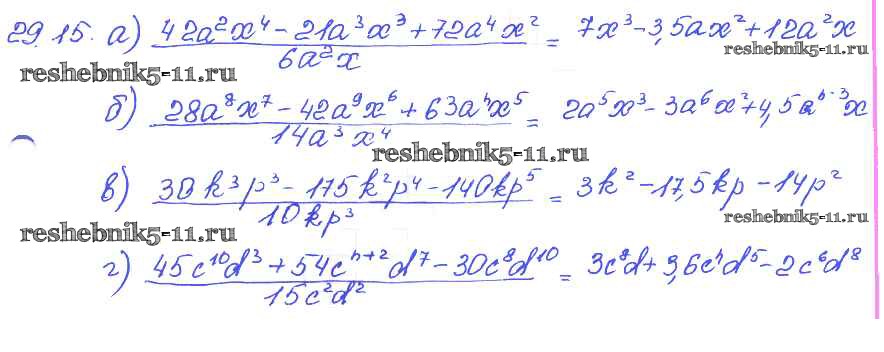 29.15. а) (42a²x⁴ - 21a³x³ + 72a⁴x²)/(6a²x) = 7x³ - 3,5ax² + 12a²x
reshebnik5-11.ru
reshebnik5-11.ru
б) (28a⁸x⁷ - 42a⁹x⁶ + 63aⁿx⁵)/(14a³x⁴) = 2a⁵x³ - 3a⁶x² + 4,5aⁿ⁻³x
reshebnik5-11.ru
в) (30k³p³ - 175k²p⁴ - 140kp⁵)/(10kp³) = 3k² - 17,5kp - 14p²
reshebnik5-11.ru
reshebnik5-11.ru
г) (45c¹⁰d³ + 54cⁿ⁺²d⁷ - 30c⁸d¹⁰)/(15c²d²) = 3c⁸d + 3,6cⁿd⁵ - 2c⁶d⁸